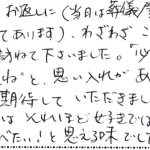 お返しに(当日は葬儀屋
てあります)、わざわざ こ
訪ねて下さいました。「心
ね"と、思い入れが あ
期待して いただきまし
は それほど 好きでは
べたい!と思える味でした